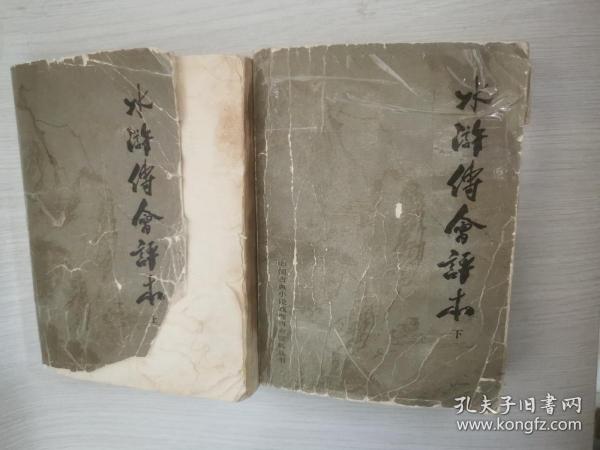 水滸傳會評本
上
水滸傳會評本
下
孔夫子旧书网
www.kongfz.com